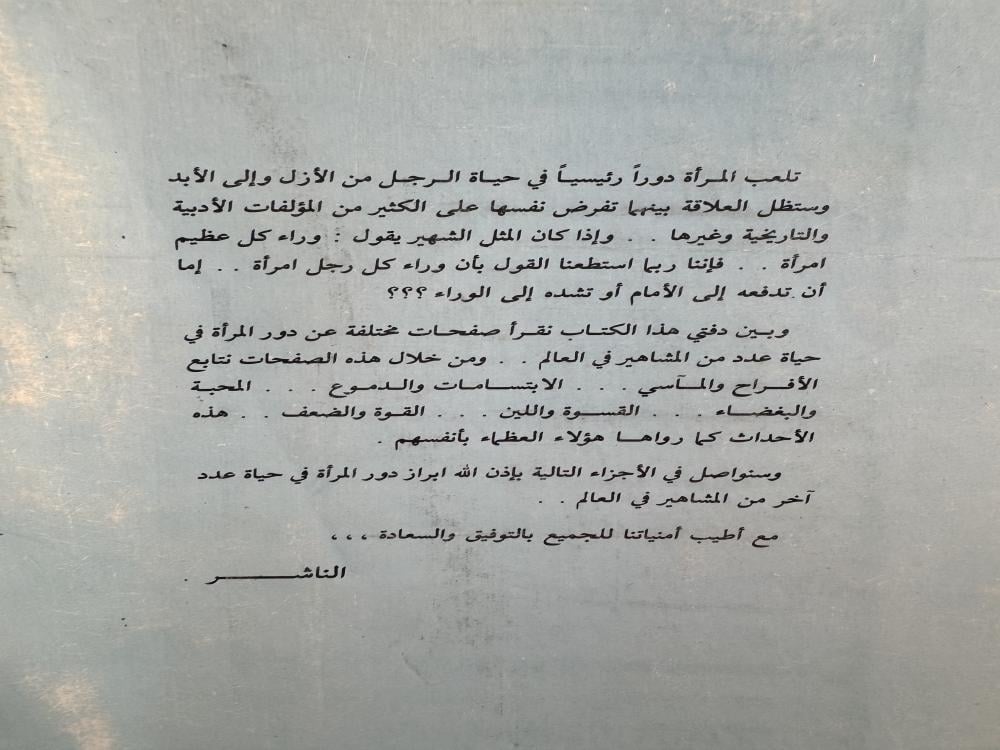 تلعب المرأة دوراً رئيسياً في حياة الرجل من الأزل وإلى الأبد
وستظل العلاقة بينهما تفرض نفسها على الكثير من المؤلفات الأدبية
والتاريخية وغيرها . . وإذا كان المثل الشهير يقول : وراء كل عظيم
امرأة . . فإننا ربما استطعنا القول بأن وراء كل رجل امرأة . . إما
أن تدفعه إلى الأمام أو تشده إلى الوراء ؟؟؟
وبين دفتي هذا الكتاب نقرأ صفحات مختلفة عن دور المرأة في
حياة عدد من المشاهير في العالم . . ومن خلال هذه الصفحات نتابع
الأفراح والمآسي . . . الابتسامات والدموع . . . المحبة
والبغضاء . . . القسوة واللين . . . القوة والضعف . . هذه
الأحداث كما رواها هؤلاء العظماء بأنفسهم .
وسنواصل في الأجزاء التالية بإذن الله ابراز دور المرأة في حياة عدد
آخر من المشاهير في العالم . .
مع أطيب أمنياتنا للجميع بالتوفيق والسعادة ،،،
الناشر